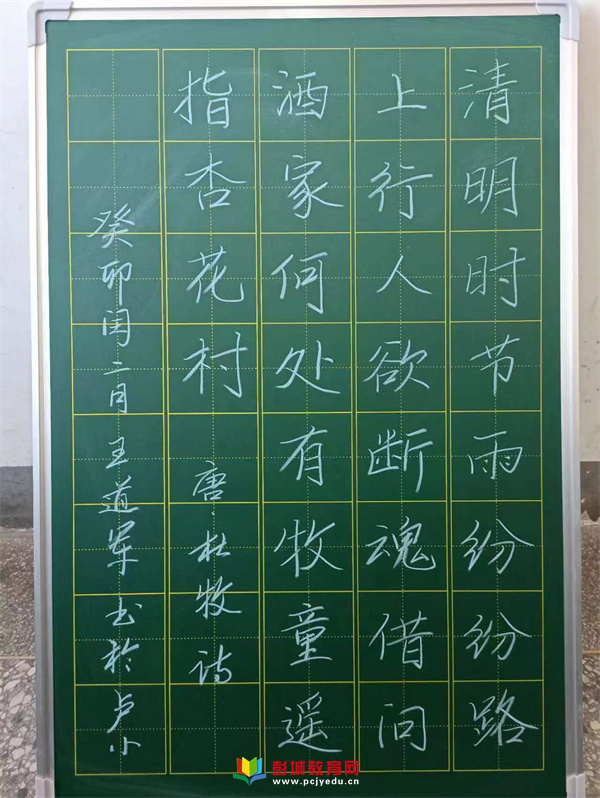 清明时节雨纷纷路
上行人欲断魂借问
酒家何处有牧童遥
指杏花村 唐·杜牧诗
癸卯闰二月王道军书于卢小
彭城教育网
www.pcjyedu.cn